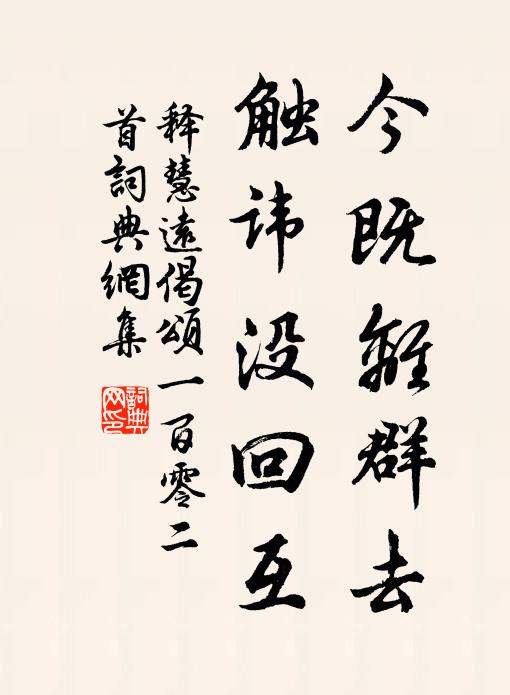 今既離群去
触讳没回互
释慧遠偈頌一百零二
首詞典網集
詞典网印